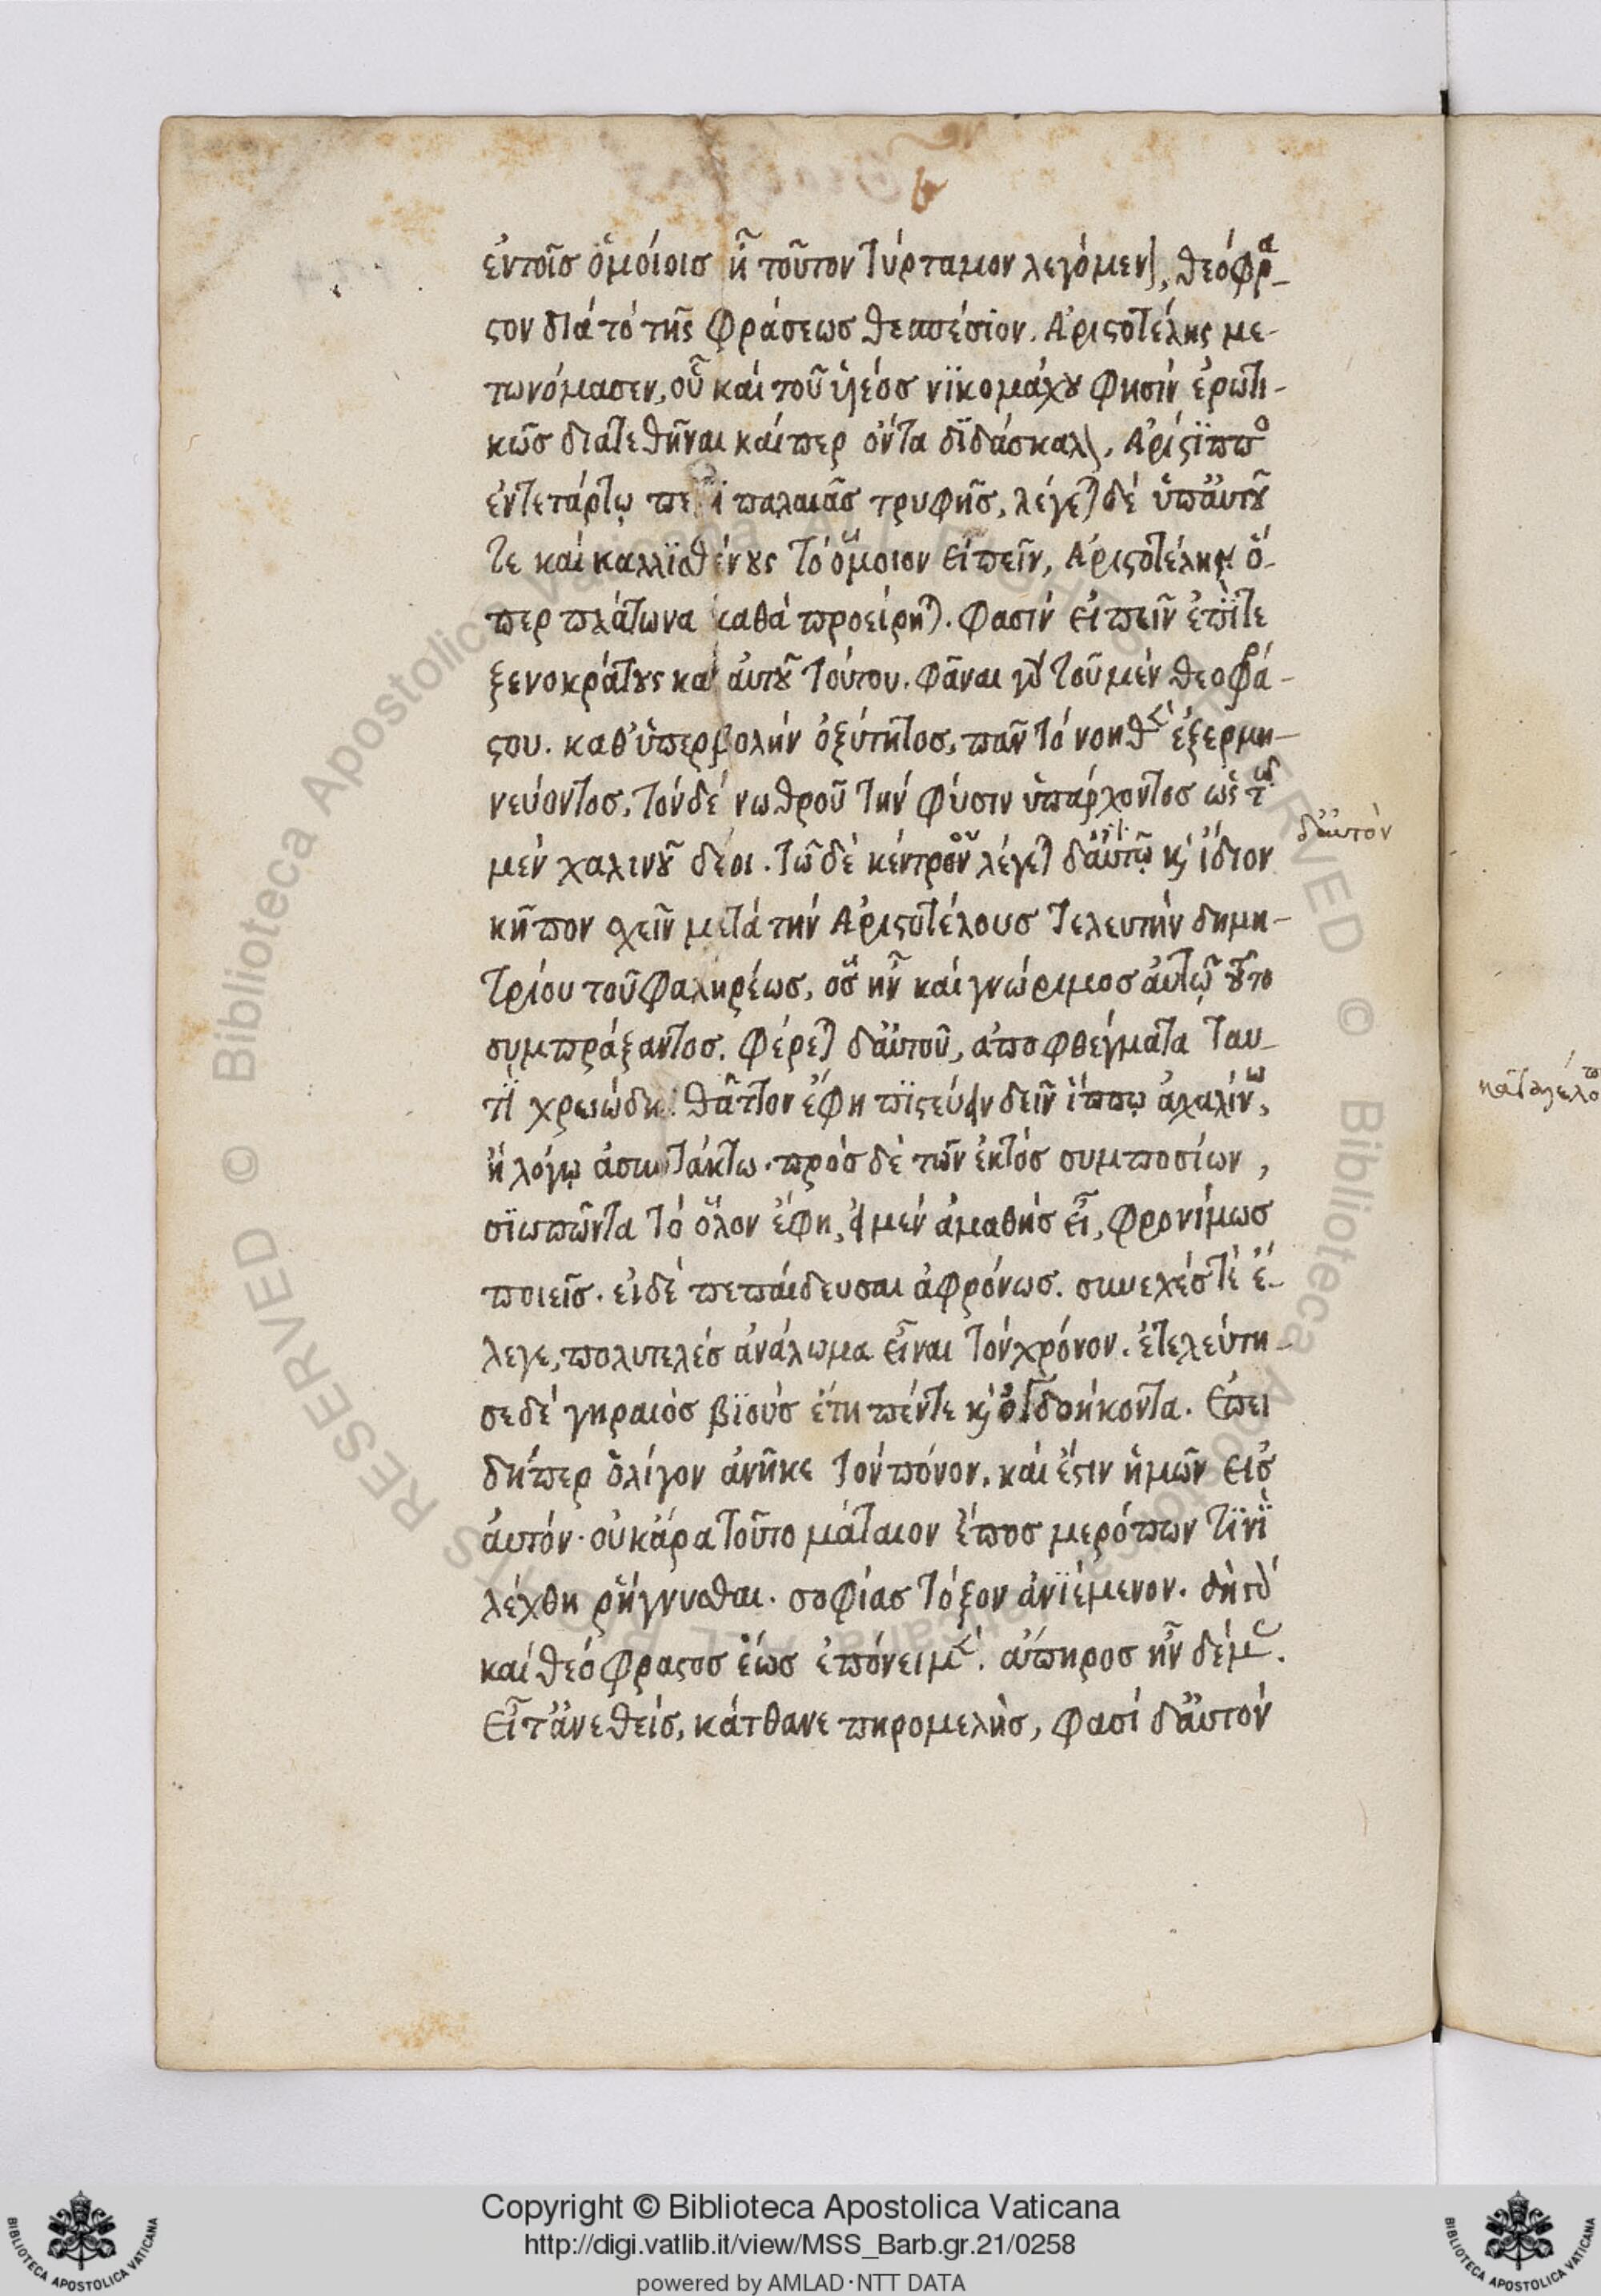 ἐν τοῖσ ὁμοίοισ ἢ τοῦτον Τύρταμον λεγόμενον, θεόφρα-
στον διὰ τὸ τῆς φράσεωσ θεσπέσιον. Ἀριστοτέλης με-
τωνόμασεν, οὗ καὶ τοῦ ὑιέοσ νϊκομάχου φησὶν ἐρωτι-
κῶσ διατεθῆναι καίπερ ὄντα δϊδάσκαλον. Ἀρίστϊππος
ἐν τετάρτῳ περὶ παλαιᾶσ τρυφῆσ, λέγεται δὲ ὑπ' ἀυτοῦ
τε καὶ καλλϊσθένους τὸ ὅμοιον εἰπεῖν, Ἀριστοτέλης ὅ-
περ πλάτωνα καθὰ προείρηται. φασὶν εἰπεῖν ἐπὶ τε
ξενοκράτους καὶ ἀυτοῦ τούτου. φᾶναι γὰρ τοῦ μὲν θεοφρά-
στου. καθ' ὑπερβολὴν ὀξύτητοσ, πᾶν τὸ νοηθὲν ἐξερμη-
νεύοντοσ, τὸν δὲ νωθροῦ τὴν φύσιν ὑπάρχοντοσ ὡς τῶ
μὲν χαλινοῦ δέοι. τῶ δὲ κέντρου λέγεται δ' ἀυτῷ καὶ ἴδιον
δ' ἀυτὸν
κῆπον σχεῖν μετὰ τὴν Ἀριστοτέλουσ τελευτὴν δημη-
τρίου τοῦ φαληρέωσ, ὃσ ἦν καὶ γνώριμοσ ἀυτῷ τοῦτο
συμπράξαντοσ. φέρεται δ' ἀυτοῦ, ἀποφθέγματα ταυ-
τὶ χρειώδη. θᾶττον ἔφη πϊστεύειν δεῖν ἵππῳ ἀχαλίνω,
ἢ λόγῳ ἀσυντάκτω. πρὸσ δὲ τῶν ἐκτὸσ συμποσίων,
σϊωπῶντα τὸ ὅλον ἔφη, εἰ μὲν ἀμαθὴσ εἶ, φρονίμωσ
ποιεῖσ. εἰ δὲ πεπάιδευσαι ἀφρόνωσ. συνεχέσ τὲ ἔ-
λεγε, πολυτελὲσ ἀνάλωμα εἶναι τὸν χρόνον. ἐτελεύτη-
σε δὲ γηραιὸσ βϊοὺσ ἔτη πέντε καὶ ὀγδοήκοντα. Ἐπει
δήπερ ὀλίγον ἀνῆκε τὸν πόνον. καὶ ἔστιν ἡμῶν εἰσ
ἀυτόν. οὐκ ἄρα τοῦτο μάταιον ἔποσ μερόπων τϊνὶ
λέχθη ῥήγνυσθαι. σοφίασ τόξον ἀνϊέμενον. δὴ γὰρ
καὶ θεόφραστοσ ἕωσ ἐπόνει μὲν. ἄπηροσ ἦν δέμας.
Εἶτ' ἀνεθείσ, κάτθανε πηρομελὴσ, φασὶ δ' ἀυτὸν